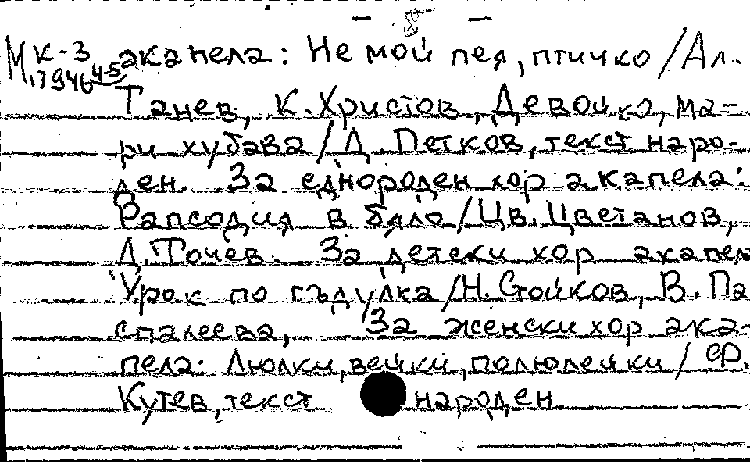 — 8 —
МК-3 акапела: Не мой пея, птичко / Ал.
17946 4-5
Танев, К. Христов, Девойко, ма-
ри хубава / Д. Петков, текст наро-
ден. За еднороден хор акапела:
Рапсодия в бяло / Цв. Цветанов,
Д. Точев. За детски хор акапела
Урок по гъдулка / Н. Стойков, В. Па
спалеева, За женски хор ака-
пела: Люлки, вейки, полюлейки / Ф.
Кутев, текст народен.